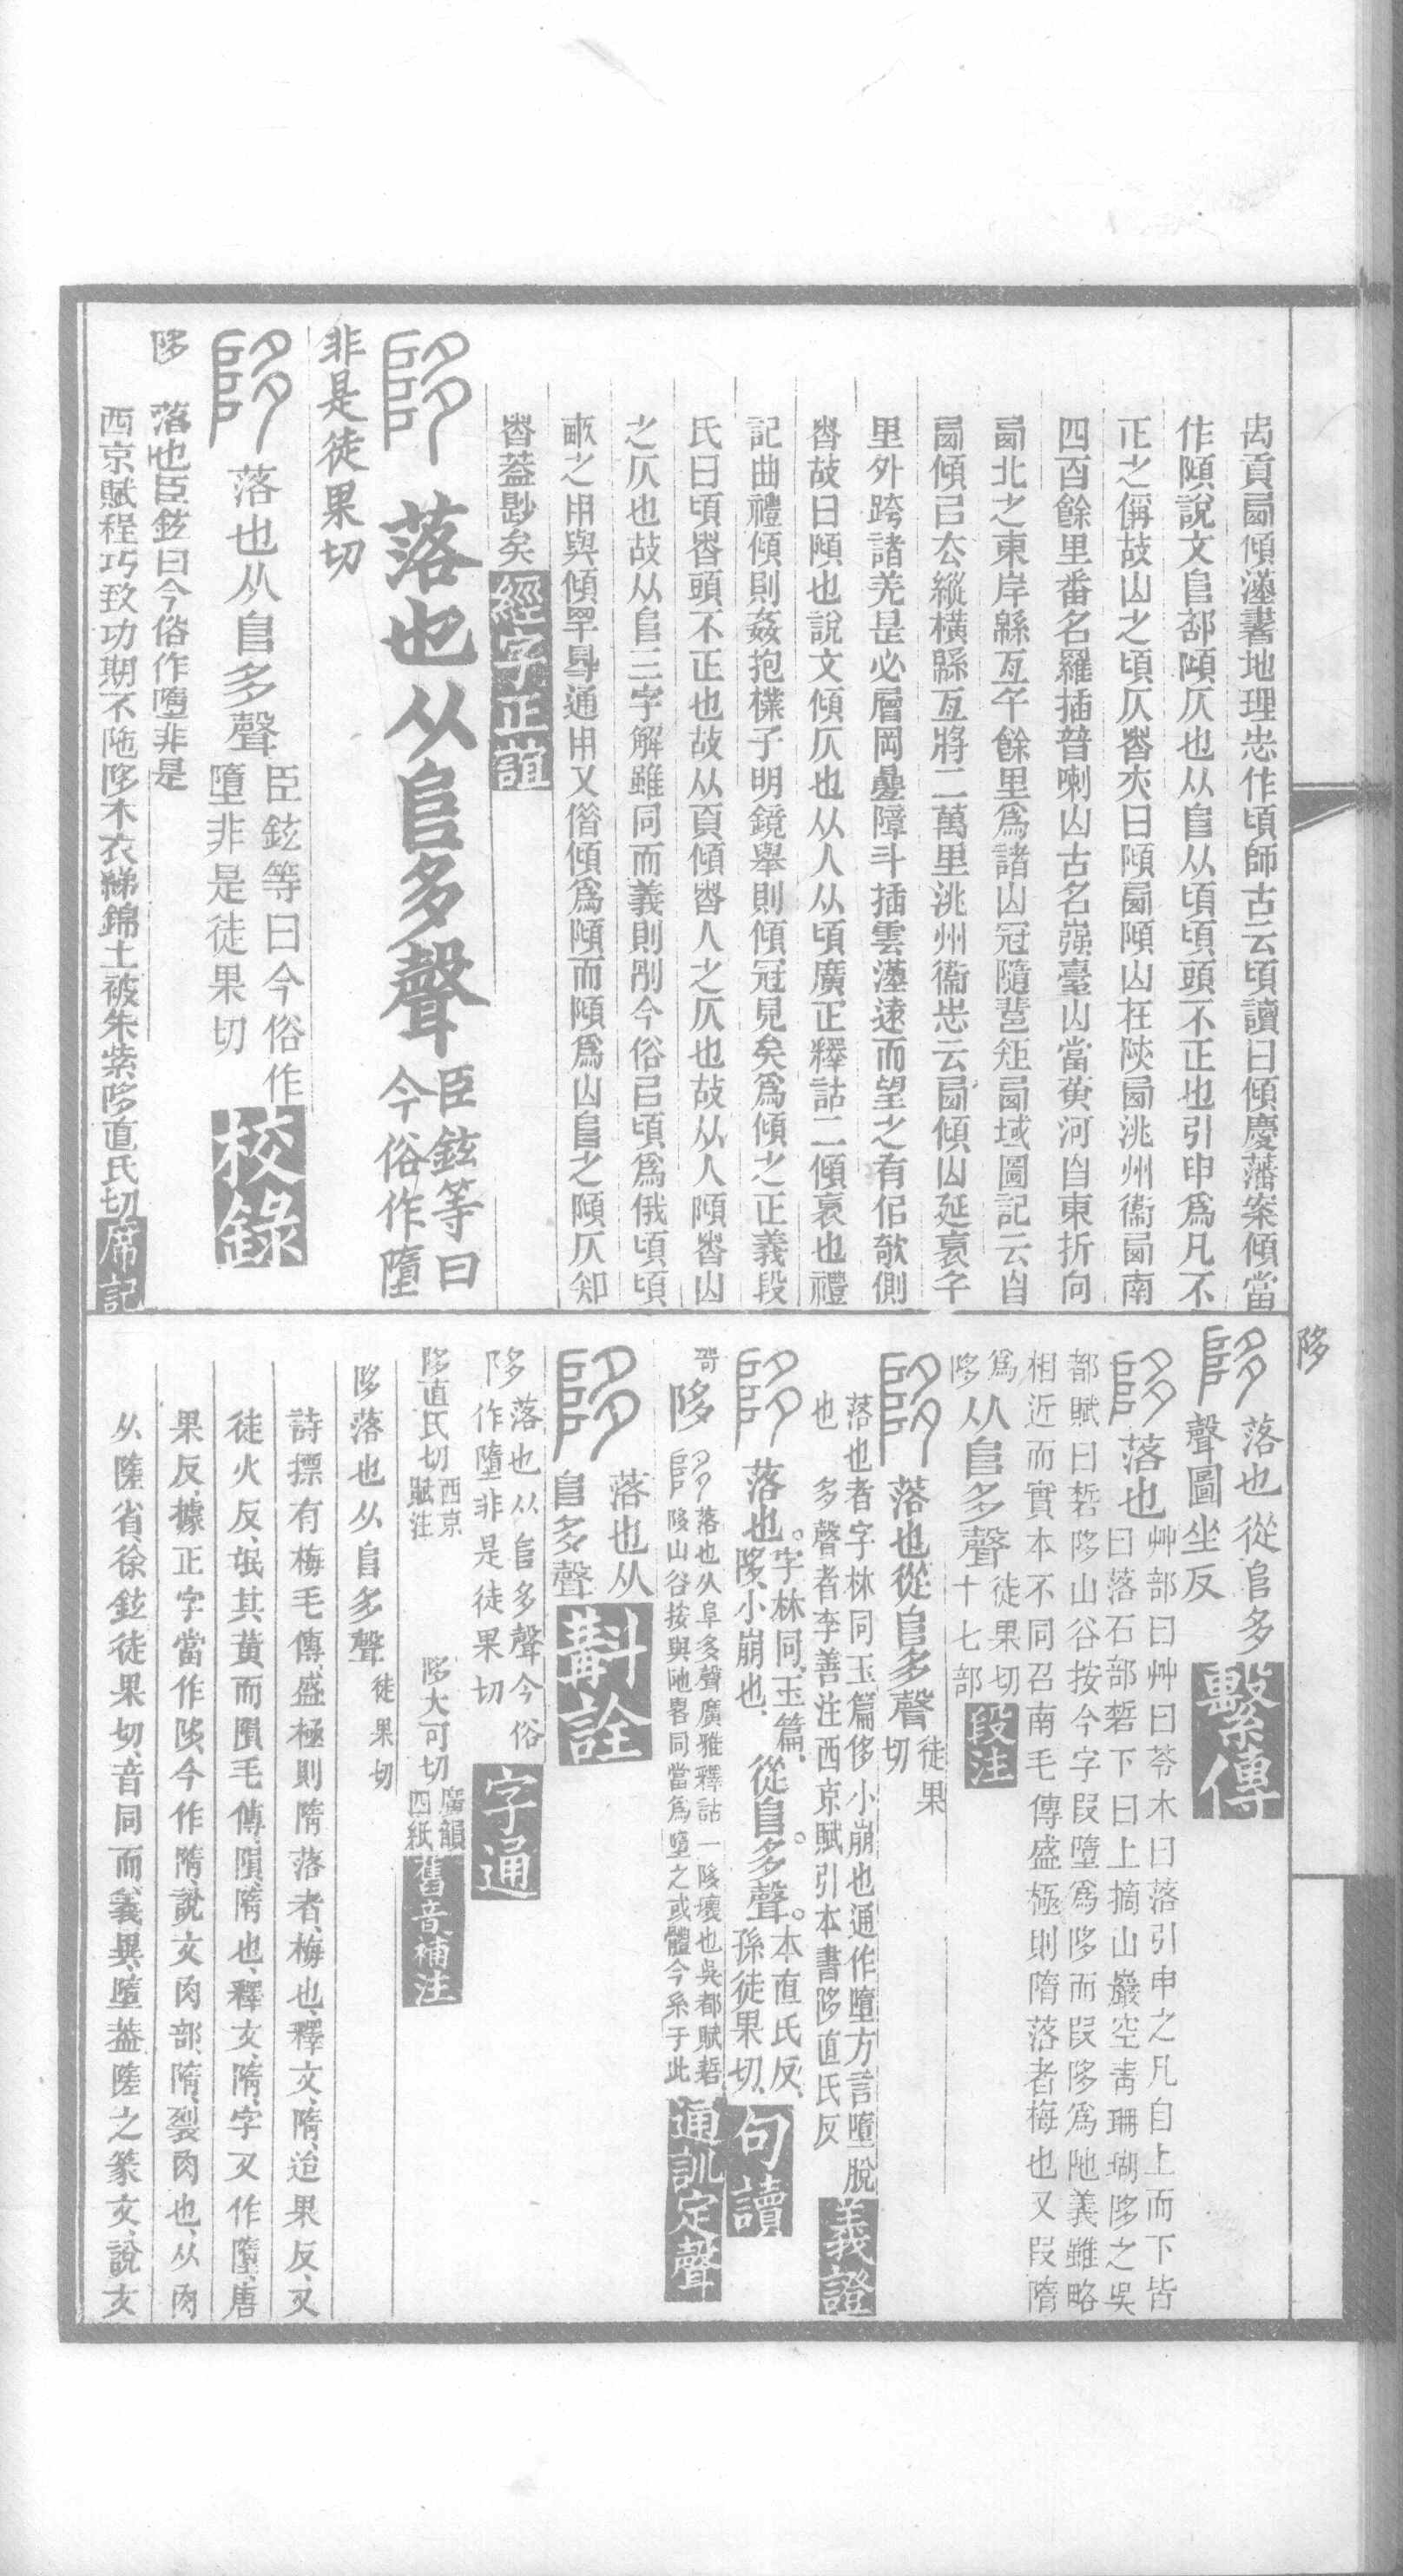 禹貢㐭傾漢書地理志作頃師古云頃讀曰傾慶藩案傾當
作頠說文𨸏部頠仄也从𨸏从頃頃頭不正也引申爲凡不
正之偁故山之頃仄者亦曰頠山在陝洮州衞南
四百餘里番名羅插普喇山古名嵹臺山當黃河自東折向
北之東岸緜亙千餘里爲諸山冠隨域圖記云自
傾已去縱橫緜亙將二萬里洮州衞志云傾山延袤千
里外跨諸羌是必層岡曡障斗插雲漢遠而望之有佀欹側
者故曰頠也說文傾仄也从人从頃廣正釋詁二傾衺也禮
記曲禮傾則姦抱樸子明鏡舉則傾冠見矣爲傾之正義段
氏曰頃者頭不正也故从頁傾者人之仄也故从人頠者山
之仄也故从𨸏三字解雖同而義則別今俗㠯頃爲俄頃頃
畝之用與傾罕見通用又借傾爲頠而頠爲山𨸏之頠仄知
者葢尟矣 經字正誼
陊 落也从𨸏多聲 臣鉉等曰今俗作墮
非是徒果切
陊 落也从𨸏多聲 臣鉉等曰今俗作墮非是徒果切 校錄
陊 落也臣鉉曰今俗作墮非是
西京賦程巧致功期不陁陊木衣綈錦土被朱紫陊直氏切 席記
陊
陊 落也從𨸏多聲圖坐反 繫傳
陊 落也 艸部曰艸曰苓木曰落引申之凡自上而下皆
曰落石部硩下曰上摘山巖空靑珊瑚陊之吳
都賦曰硩陊山谷按今字叚墮爲陊而叚陊爲陁義雖略
相近而實本不同召南毛傳盛極則隋落者梅也又叚隋
爲陊 从𨸏多聲 徒果切十七部 段注
陊 落也從𨸏多聲 徒果切
落也者字林同玉篇陊小崩也通作墮方言墮脫
也 多聲者李善注西京賦引本書陊直氏反 義證
陊 落也。字林同、玉篇、陊、小崩也、從𨸏多聲。本直氏反、孫徒果切、 句讀
陊 落也从阜多聲廣雅釋詁一陊壞也吳都賦硩
陊山谷按與陁略同當爲墮之或體今系于此 通訓定聲
陊 落也从𨸏多聲 斠詮
陊 落也从𨸏多聲今俗作墮非是徒果切 字通
陊直氏切 西京賦注 陊大可切 廣韻四紙 舊音補注
陊落也从𨸏多聲 徒果切
詩摽有梅毛傳、盛極則隋落者、梅也、釋文、隋、迨果反、又
徒火反、氓其黃而隕、毛傳、隕、隋也、釋文、隋、字又作墮、唐
果反、據正字當作陊、今作隋、說文肉部、隋、裂肉也、从肉
从隓省、徐鉉徒果切、音同而義異、墮葢隓之篆文、說文